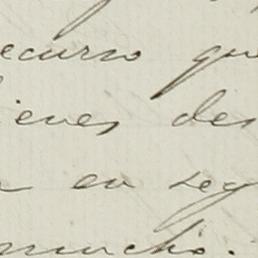 ecurso que
ienes des
en seg
mucho.